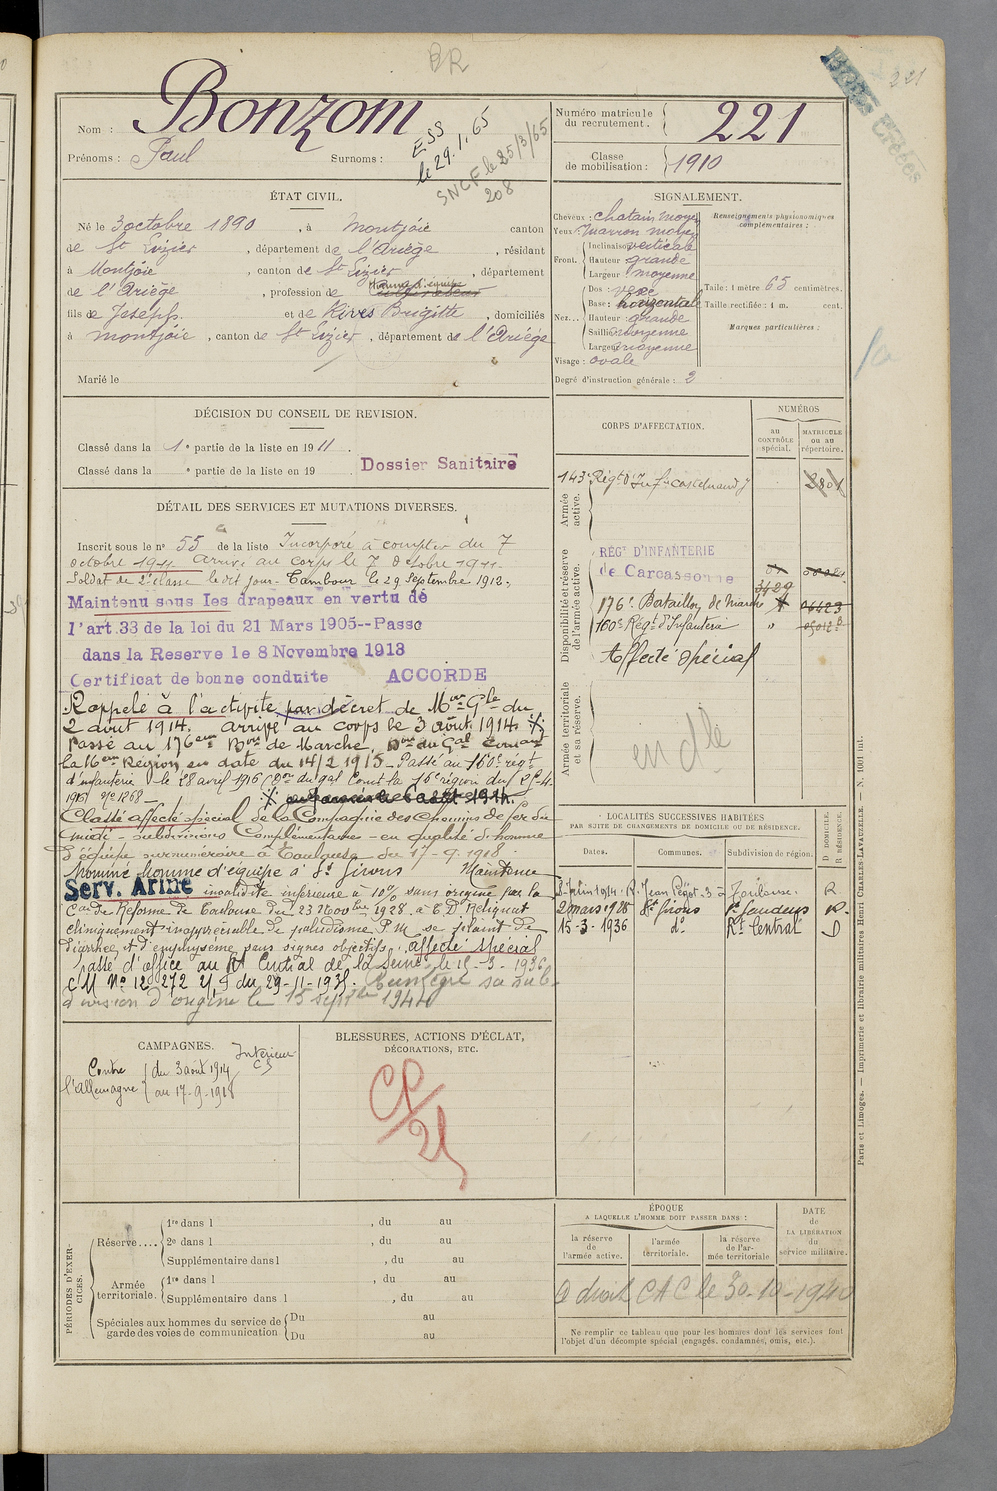 BR
221
Nom : Bonzom
Prénoms : Paul Surnoms :
ESS
le 29.1.65
SNCF le 25/3/65
208
Numéro matricule
du recrutement. 221
Classe
de mobilisation : 1910
ÉTAT CIVIL.
Né le 3 octobre 1890, à Montjoie canton
de St Lizier, département de l'Ariège, résidant
à Montjoie, canton de St Lizier, département
de l'Ariège, profession de homme d'équipe cultivateur
fils de Joseph et de Rives Brigitte, domiciliés
à Montjoie, canton de St Lizier, département de l'Ariège
Marié le
SIGNALEMENT.
Cheveux : chatain moyen
Yeux : marron moyen
Front. Inclinaison verticale
Hauteur grande
Largeur moyenne
Nez... Dos : vexe
Base : horizontale
Hauteur : grande
Saillie moyenne
Largeur moyenne
Visage : ovale
Degré d'instruction générale : 2
Renseignements physionomiques
complémentaires :
Taille : 1 mètre 65 centimètres.
Taille rectifiée : 1 m. cent.
Marques particulières :
DÉCISION DU CONSEIL DE REVISION.
Classé dans la 1e partie de la liste en 1911.
Classé dans la e partie de la liste en 19
Dossier Sanitaire
DÉTAIL DES SERVICES ET MUTATIONS DIVERSES.
Inscrit sous le no 55 de la liste Incorporé à compter du 7
octobre 1911. Arrivé au corps le 7 octobre 1911.
Soldat de 2e classe le dit jour. Tambour le 29 Septembre 1912.
Maintenu sous les drapeaux en vertu de
l'art.33 de la loi du 21 Mars 1905--Passe
dans la Reserve le 8 Novembre 1913
Certificat de bonne conduite ACCORDE
Rappelé à l'activité par décret de Mon Gle du
2 août 1914. arrivé au corps le 3 août 1914
Passé au 176eme Bon de Marche, Don du Gal Comant
la 16eme Région en date du 14/2 1915 - Passé au 160e régt
d'infanterie le 28 avril 1916 (Don du gal Comt la 16e région du 25-4-
1916) No 1268 -
Classé affecté spécial de la Compagnie des Chemins de fer du
Midi - subdivisions Complémentaires - en qualité d'homme
d'équipe surnuméraire à Toulouse du 17-9-1918.
homme d'équipe à St Girons Maintenu
Serv. Armé invalidité inférieure à 10% sans origine par la
Con de Réforme de Toulouse du 23 Novbre 1928. à E.D. Reliquat
cliniquement inappréciable de paludisme P.M. se plaint de
diarrhée et d'emphysème sans signes objectifs. affecté spécial
passé d'office au Rt Central de la Seine le 15-3-1936
CM No 12272 du 29-11-1935. Réintègre sa sub-
division d'origine le 15 septbre 1940
CORPS D'AFFECTATION.
NUMÉROS
au
CONTRÔLE
spécial.
MATRICULE
ou au
répertoire.
Armée
active.
143e Régt d'Inf.ie Castelnaudy 2801
Disponibilité et réserve
de l'armée active.
RÉGt D'INFANTERIE
de Carcassonne
3429
176e Bataillon de Marche 06423
160e Régt d'Infanterie "
Affecté spécial
Armée territoriale
et sa réserve.
en dle
LOCALITÉS SUCCESSIVES HABITÉES
PAR SUITE DE CHANGEMENTS DE DOMICILE OU DE RÉSIDENCE.
Dates. Communes. Subdivision de région. D DOMICILE. R RÉSIDENCE.
juin 1914. R. Jean Pégot. 3 à Toulouse. R
2 mars 1928 St Girons St Gaudens R.
15-3-1936 do Rt Central D
CAMPAGNES.
Contre
l'Allemagne
du 3 août 1914
au 17-9-1918
Intérieur
CS
BLESSURES, ACTIONS D'ÉCLAT,
DÉCORATIONS, ETC.
PÉRIODES D'EXER-
CICES.
Réserve.... 1re dans l , du au
2e dans l , du au
Supplémentaire dans l , du au
Armée
territoriale. 1re dans l , du au
Supplémentaire dans l , du au
Spéciales aux hommes du service de
garde des voies de communication Du au
Du au
ÉPOQUE
A LAQUELLE L'HOMME DOIT PASSER DANS :
la réserve
de
l'armée active.
l'armée
territoriale.
la réserve
de l'ar-
mée territoriale
DATE
de
LA LIBÉRATION
du
service militaire.
a droit CAC le 30-10-1940
Ne remplir ce tableau que pour les hommes dont les services font
l'objet d'un décompte spécial (engagés, condamnés, omis, etc.).
Paris et Limoges. — Imprimerie et librairie militaires Henri CHARLES-LAVAUZELLE. — N. 1001 int.